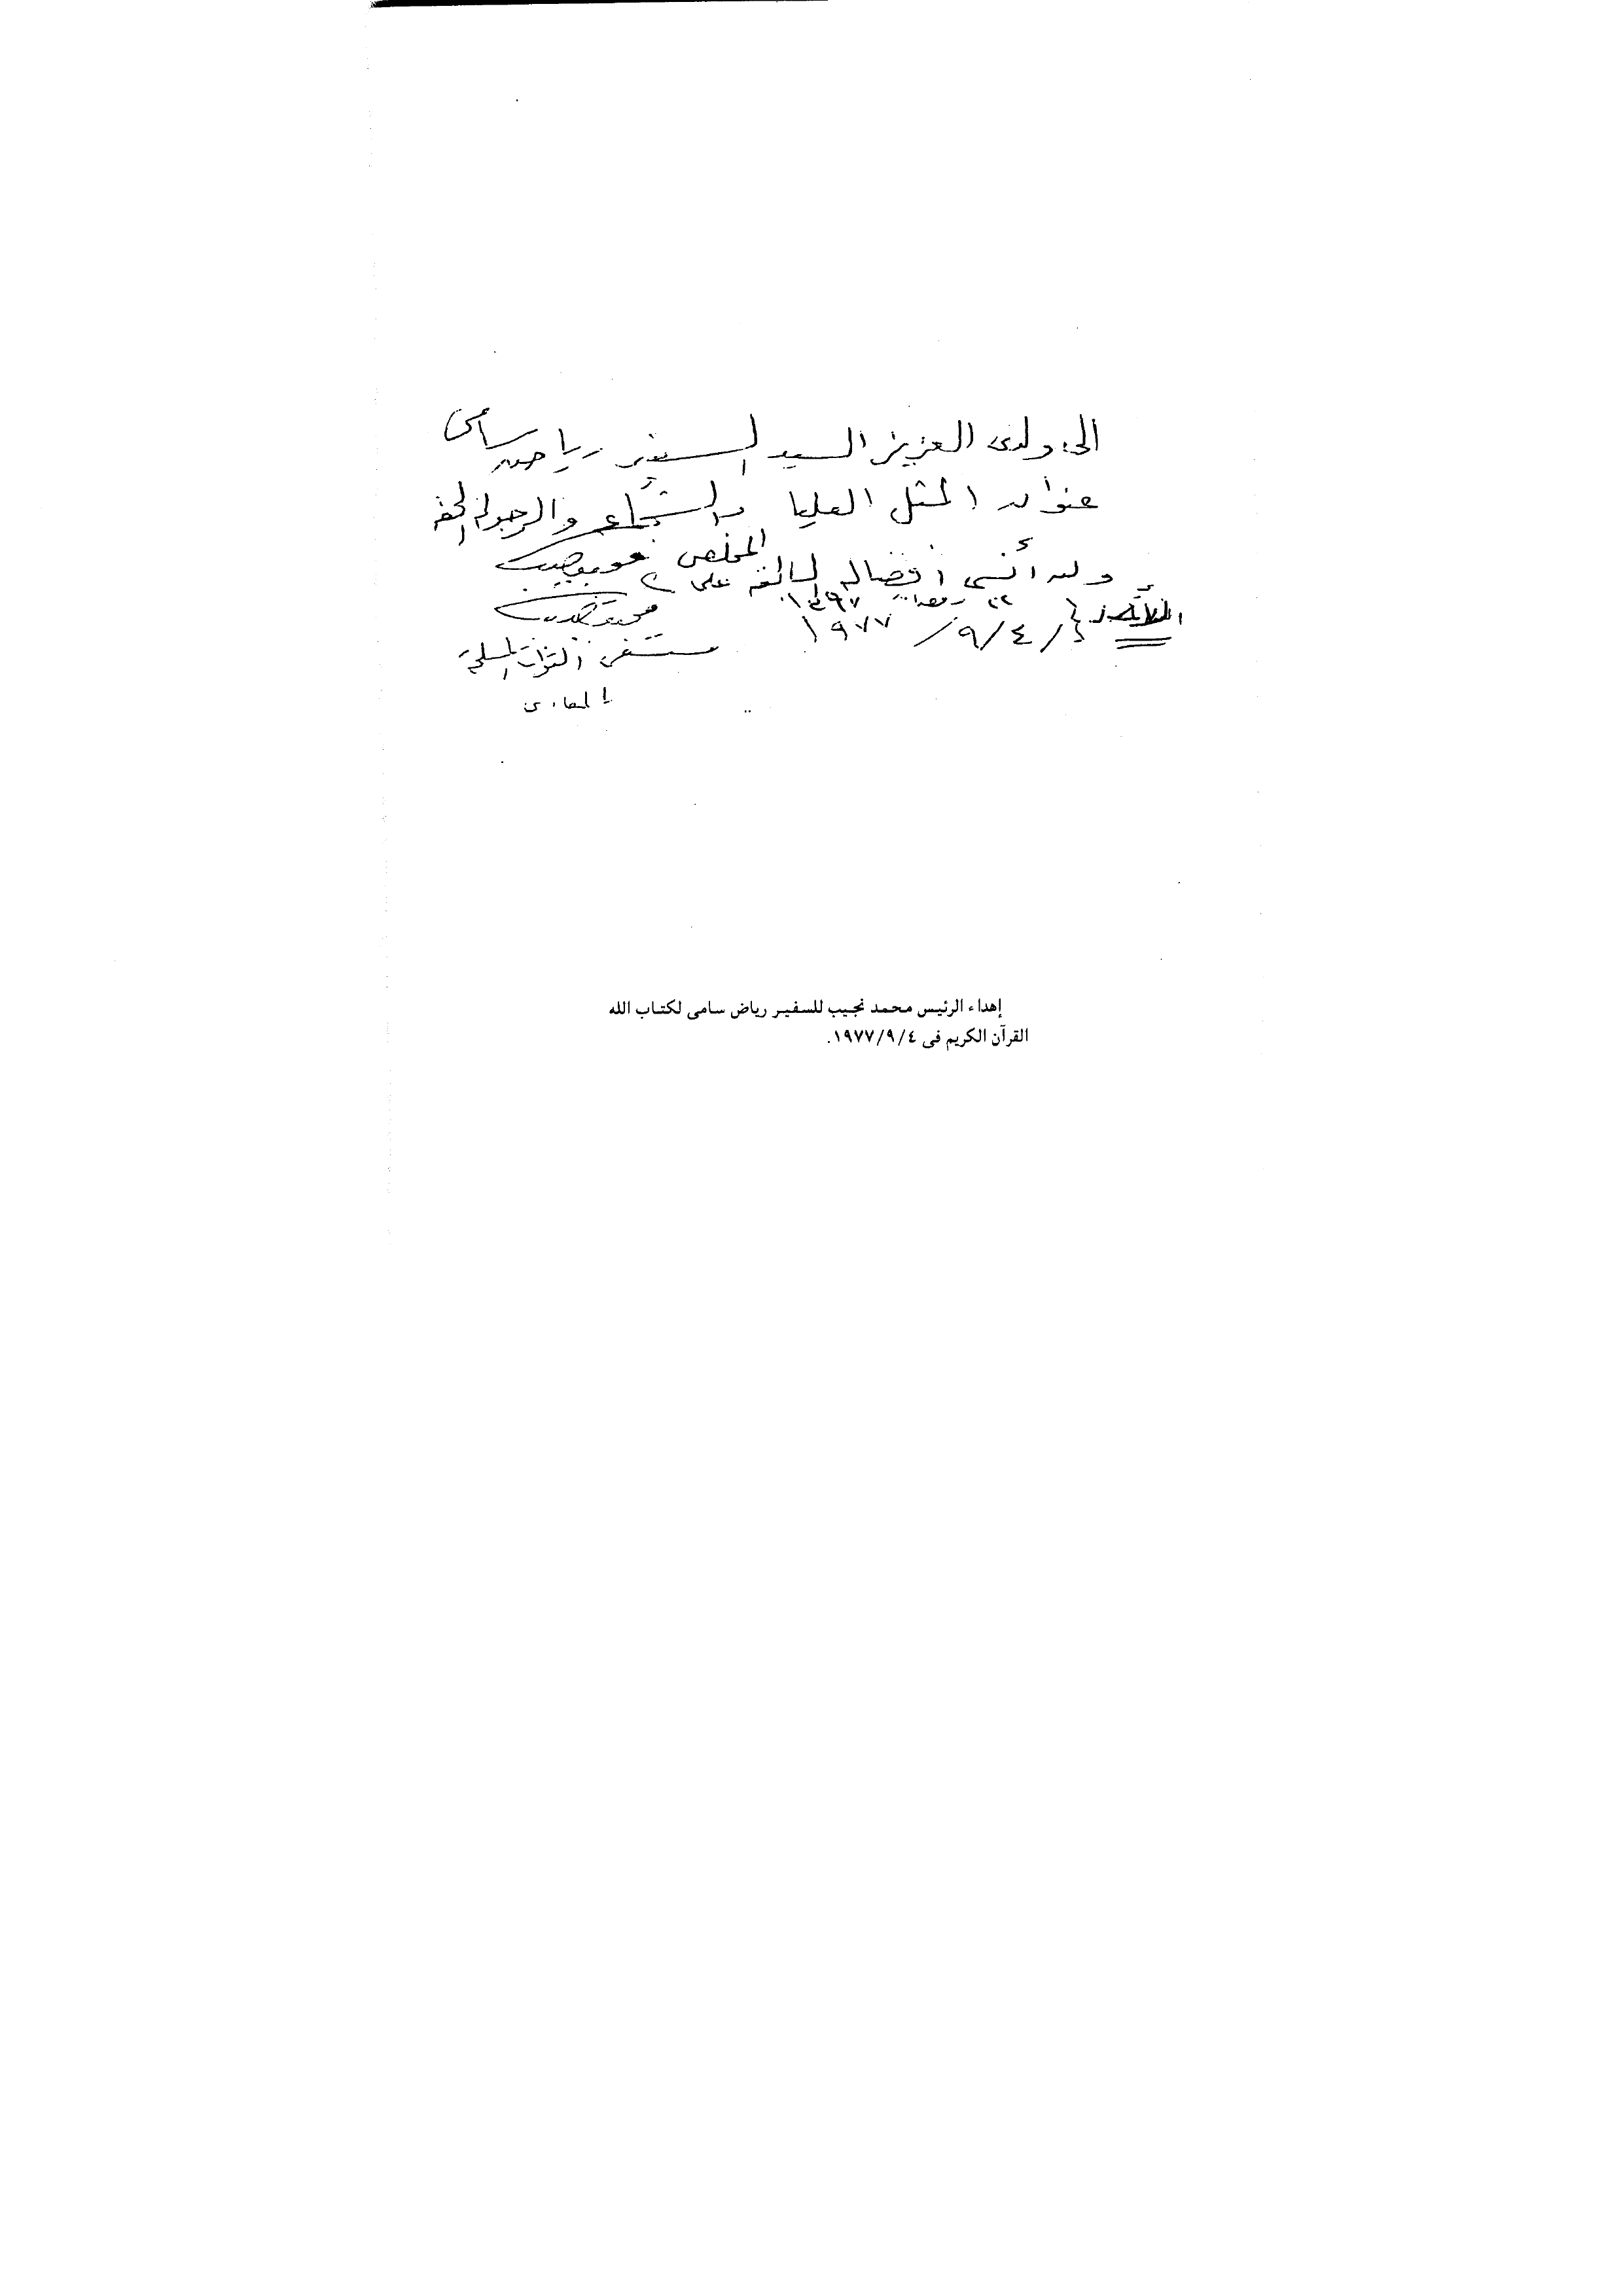 الى ولدى العزيز السيد السفير رياض سامى
عنوان المثل العليا والشجاعة والرجولة الحقة
ولن أنسى أفضاله السابقة على
المخلص محمد نجيب
الأحد ٢٠ رمضان ١٣٩٧
٤/٩/١٩٧٧
محمد نجيب
مستشفى القوات المسلحة
بالمعادى
إهداء الرئيس محمد نجيب للسفير رياض سامى لكتاب الله
القرآن الكريم فى ١٩٧٧/٩/٤.